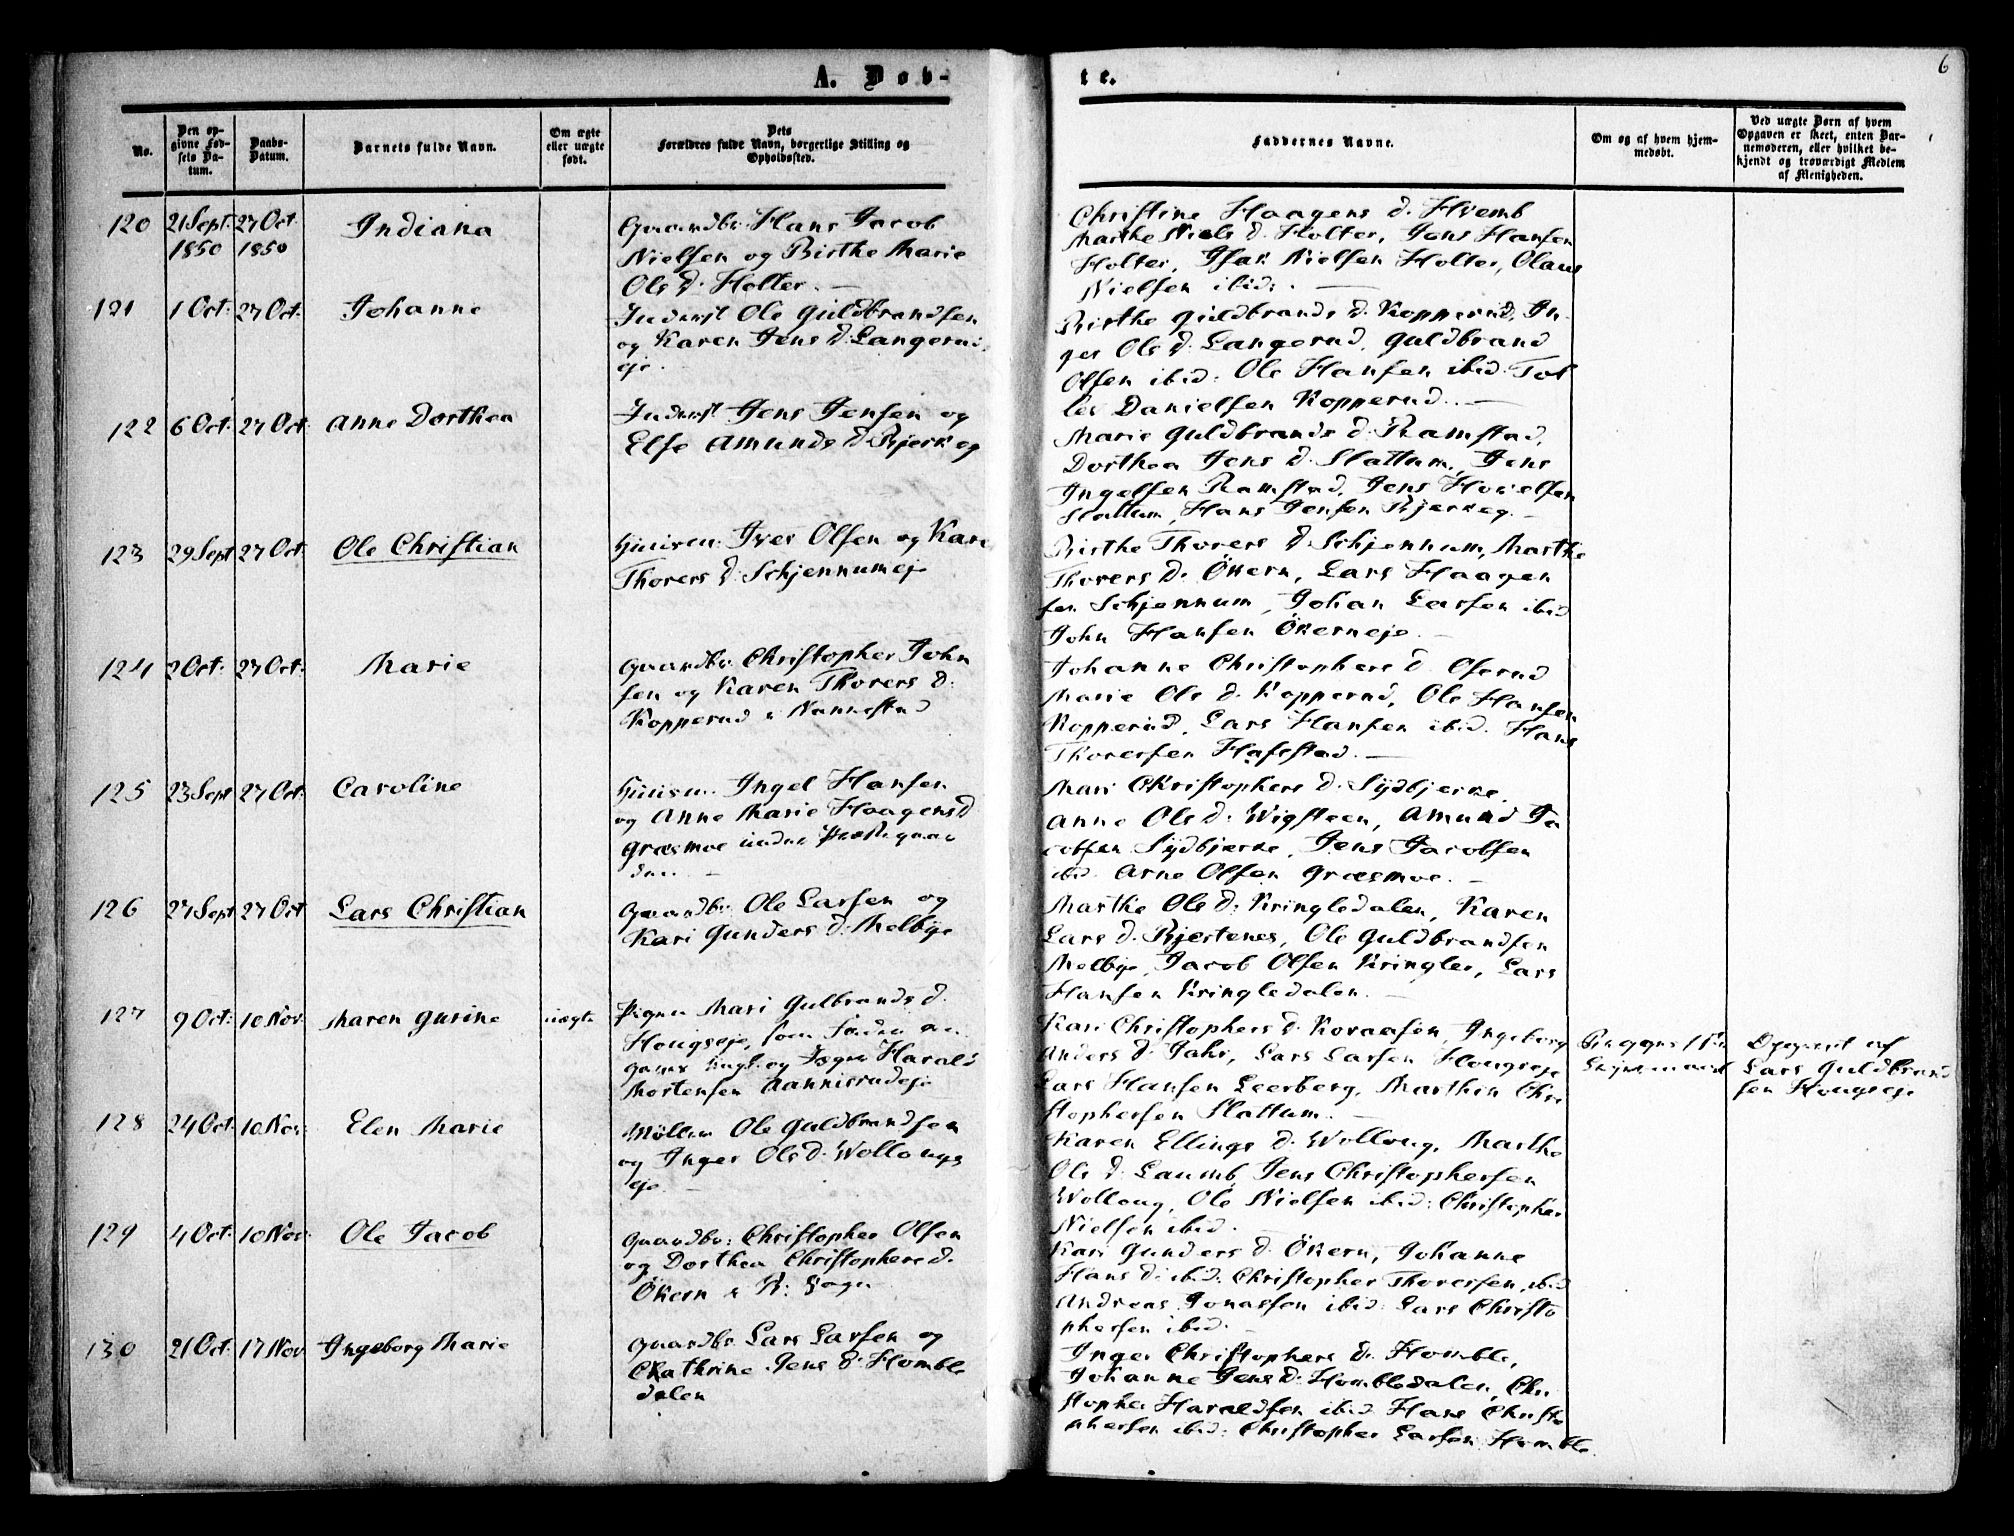 A. Døb-
No.
Den op-
givne Fød-
sels Da-
tum.
Daabs-
Datum.
Barnets fulde Navn.
Om ægte
eller uægte
født.
Dets
Forældres fulde Navn, borgerlige Stilling og
Opholdssted.
120
21 Sept.
1850
27 Oct.
1850
Indiana
Gaardbr. Hans Jacob
Nielsen og Birthe Marie
Ols d. Holter. —
121
1 Oct:
27 Oct.
Johanne
Inderst Ole Guldbrandsen
og Karen Jens d. Langerud
eje.
122
6 Oct.
27 Oct.
Anne Dorthea
Inderst Jens Jensen og
Else Amunds d. Bjerkeg
123
29 Sept
27 Oct.
Ole Christian
Huusm. Iver Olsen og Kari
Thorers d. Schjennumeje
124
2 Oct.
27 Oct.
Marie
Gaardbr. Christopher John
sen og Karen Thorers d.
Kopperud i Nannestad
125
23 Sept
27 Oct.
Caroline
Huusm. Ingel Hansen
og Anne Marie Haagens d
Græsmoe under Præstegaar
den. —
126
27 Sept
27 Oct
Lars Christian
Gaardbr. Ole Larsen og
Kari Gunders d. Melbye
127
9 Oct.
10 Nov.
Maren Gurine
uægte
Pigen Mari Gulbrands d.
Hougseje, som Fader an
gaves Ungk. og Haralds
Mortensen Aannisrudeje
128
24 Oct.
10 Nov.
Elen Marie
Møller Ole Guldbrandsen
og Inger Ols d. Wolloug
eje. —
129
4 Oct.
10 Nov.
Ole Jacob
Gaardbr: Christopher Olsen
og Dorthea Christophers d.
Økern i N: Sogn
130
21 Oct.
17 Nov.
Ingeborg Marie
Gaardbr. Lars Larsen og
Chathrine Jens d. Homble
dalen
te.
6
Faddernes Navne.
Om og af hvem hjem-
medøbt.
Ved uægte Børn af hvem
Opgaven er skeet, enten Bar-
nemoderen, eller hvilket be-
kjendt og troværdigt Medlem
af Menigheden.
Christine Haagens d. Hvemb
Marthe Niels d. Holter, Jens Hansen
Holter, Isak Nielsen Holter, Olaus
Nielsen ibid: —
Birthe Guldbrands d. Kopperud, In
ger Ols d. Langerud, Guldbrand
Olsen ibid: Ole Hansen ibid: Tol
lef Danielsen Kopperud. —
Marie Guldbrands d. Ramstad,
Dorthea Jens d. Slattum, Jens
Ingelsen Ramstad, Jens Hovelsen
Slattum, Hans Jensen Bjerkeg. —
Birthe Thorers d. Schjennum, Marthe
Thorers d. Økern, Lars Haagen
sen Schjennum, Johan Larsen ibid
John Hansen Økerneje. —
Johanne Christophers d. Oserud
Marie Ols d. Kopperud, Ole Hansen
Kopperud, Lars Hansen ibid. Hans
Thoresen Hafsstad. —
Mari Christophers d. Sydbjerke,
Anne Ols d. Wigsteen, Amund Ja
cobsen Sydbjerke, Jens Jacobsen
ibid. Arne Olsen Græsmoe. —
Marthe Ols d. Kringledalen, Karen
Lars d. Bjertenes, Ole Guldbrandsen
Melbye, Jacob Olsen Kringler, Lars
Hansen Kringledalen. —
Kari Christophers d. Koraasen, Ingeborg
Anders d. Jahr, Lars Larsen Hougseje
Lars Hansen Leerberg, Marthin Chri
stophersen Slattum. —
Opgivet af
Lars Guldbrand
sen Hougseje
Karen Ellings d. Wolloug, Marthe
Ols d. Laumb, Jens Christophersen
Wolloug, Ole Nielsen ibid: Christopher
Nielsen ibid. —
Kari Gunders d. Økern, Johanne
Hans d: ibid: Christopher Thoresen, ibid
Andreas Jonassen ibid: Lars Christo
phersen ibid. —
Inger Christophers d. Homble,
Johanne Jens d. Hombledalen, Chri
stopher Haraldsen ibid Hans Christo
phersen ibid: Christopher Larsen Homble